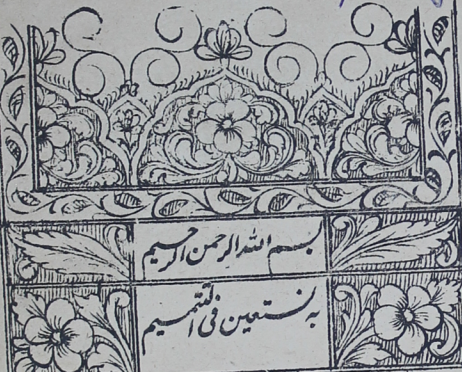 بسم الله الرحمن الرحيم
به نستعين فى التتميم